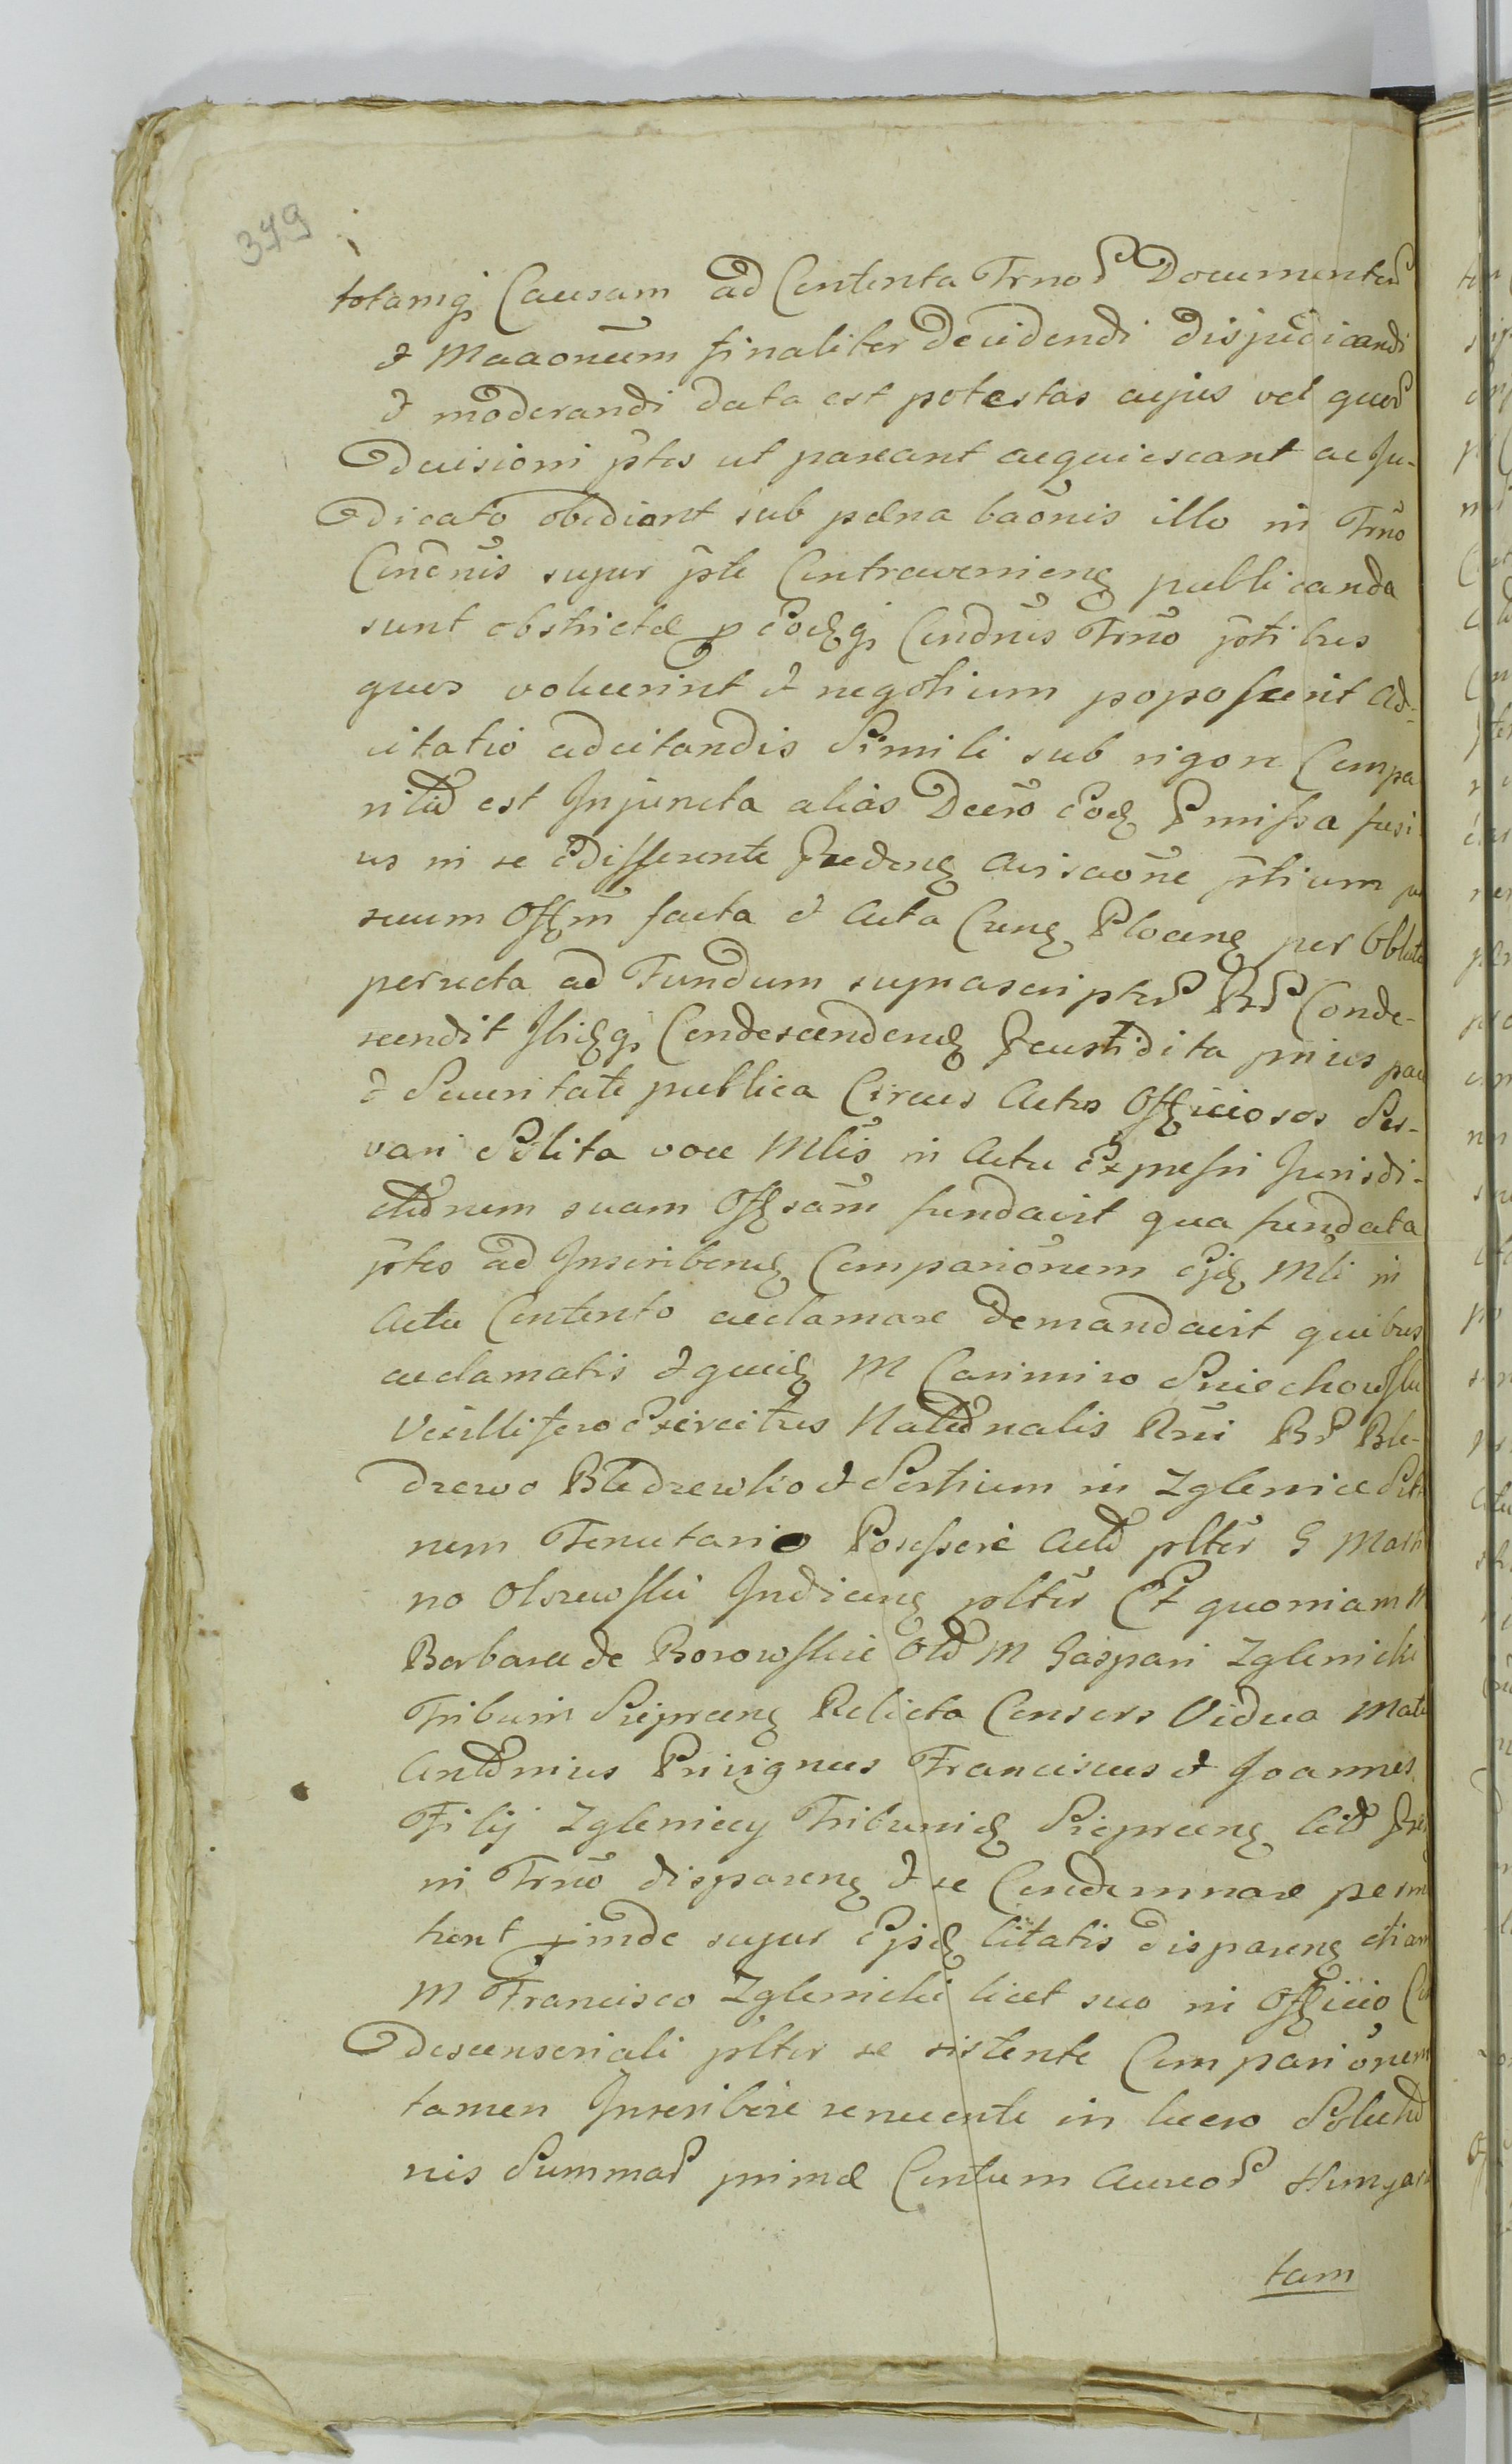 379
totamq Causam ad Contenta Trnor Documentor
& Maaonum finaliter Decidendi disjudicandi
& moderandi data est potestas cujus vel quor
Decisioni ptes ut pareant acquiescant ac Ju-
dicato obediant sub pæna baonis illo in Trno
Condnis super pte Contraveniens publicanda
sunt obstrictæ p eodq Condnis Trno ptibus
quos voluerint & negotium poposcerit Ad-
citatio adcitandis Simili sub rigore Compa
ritio est Injuncta alias Decro eod Pmissa fusi
us in se edifferente
suum Offm facta & Acta Cren Plocen per Oblata
perrecta ad Fundum suprascriptor Br Conde-
scendit Ibiq Condescenden custodita prius pace
& Securitate publica Circus Actus Officiosos Ser-
vari Solita voce Mlis in Actu Expressi Jurisdi-
ctionem suam Offsam fundavit qua fundata
ptes ad Inscriben Comparionem Ejd Mli in
Actu Contento acclamare demandavit quibus
acclamatis & quid M Casimiro Sniechowski
Vexillifero Exercitus Nationalis Rni Br Ble-
drewo Bledrewko & Sortium in Zglenice
nem Tenutario Possessore Acto pltr G Marti
no Olszewski Indicen pltr Et quoniam M
Barbara de Borowskie Olo M Gaspari Zglenicki
Tribuni Sieprcen Relicta Consors Vidua Mate
Antonius Privignus Franciscus & Joannes
Filij Zgleniccy Tribunid Sieprcen Cito
in Trno disparen & se Condemnare permi
tent proinde super Ejsd Citatis disparen etiam
M Francisco Zglenicki licet suo in Officio Con
Descensoriali pltr se sistente Comparionem
tamen Inscribere renuente in lucro Solutio
nis Summar primæ Centum Aureor Hungari
tam